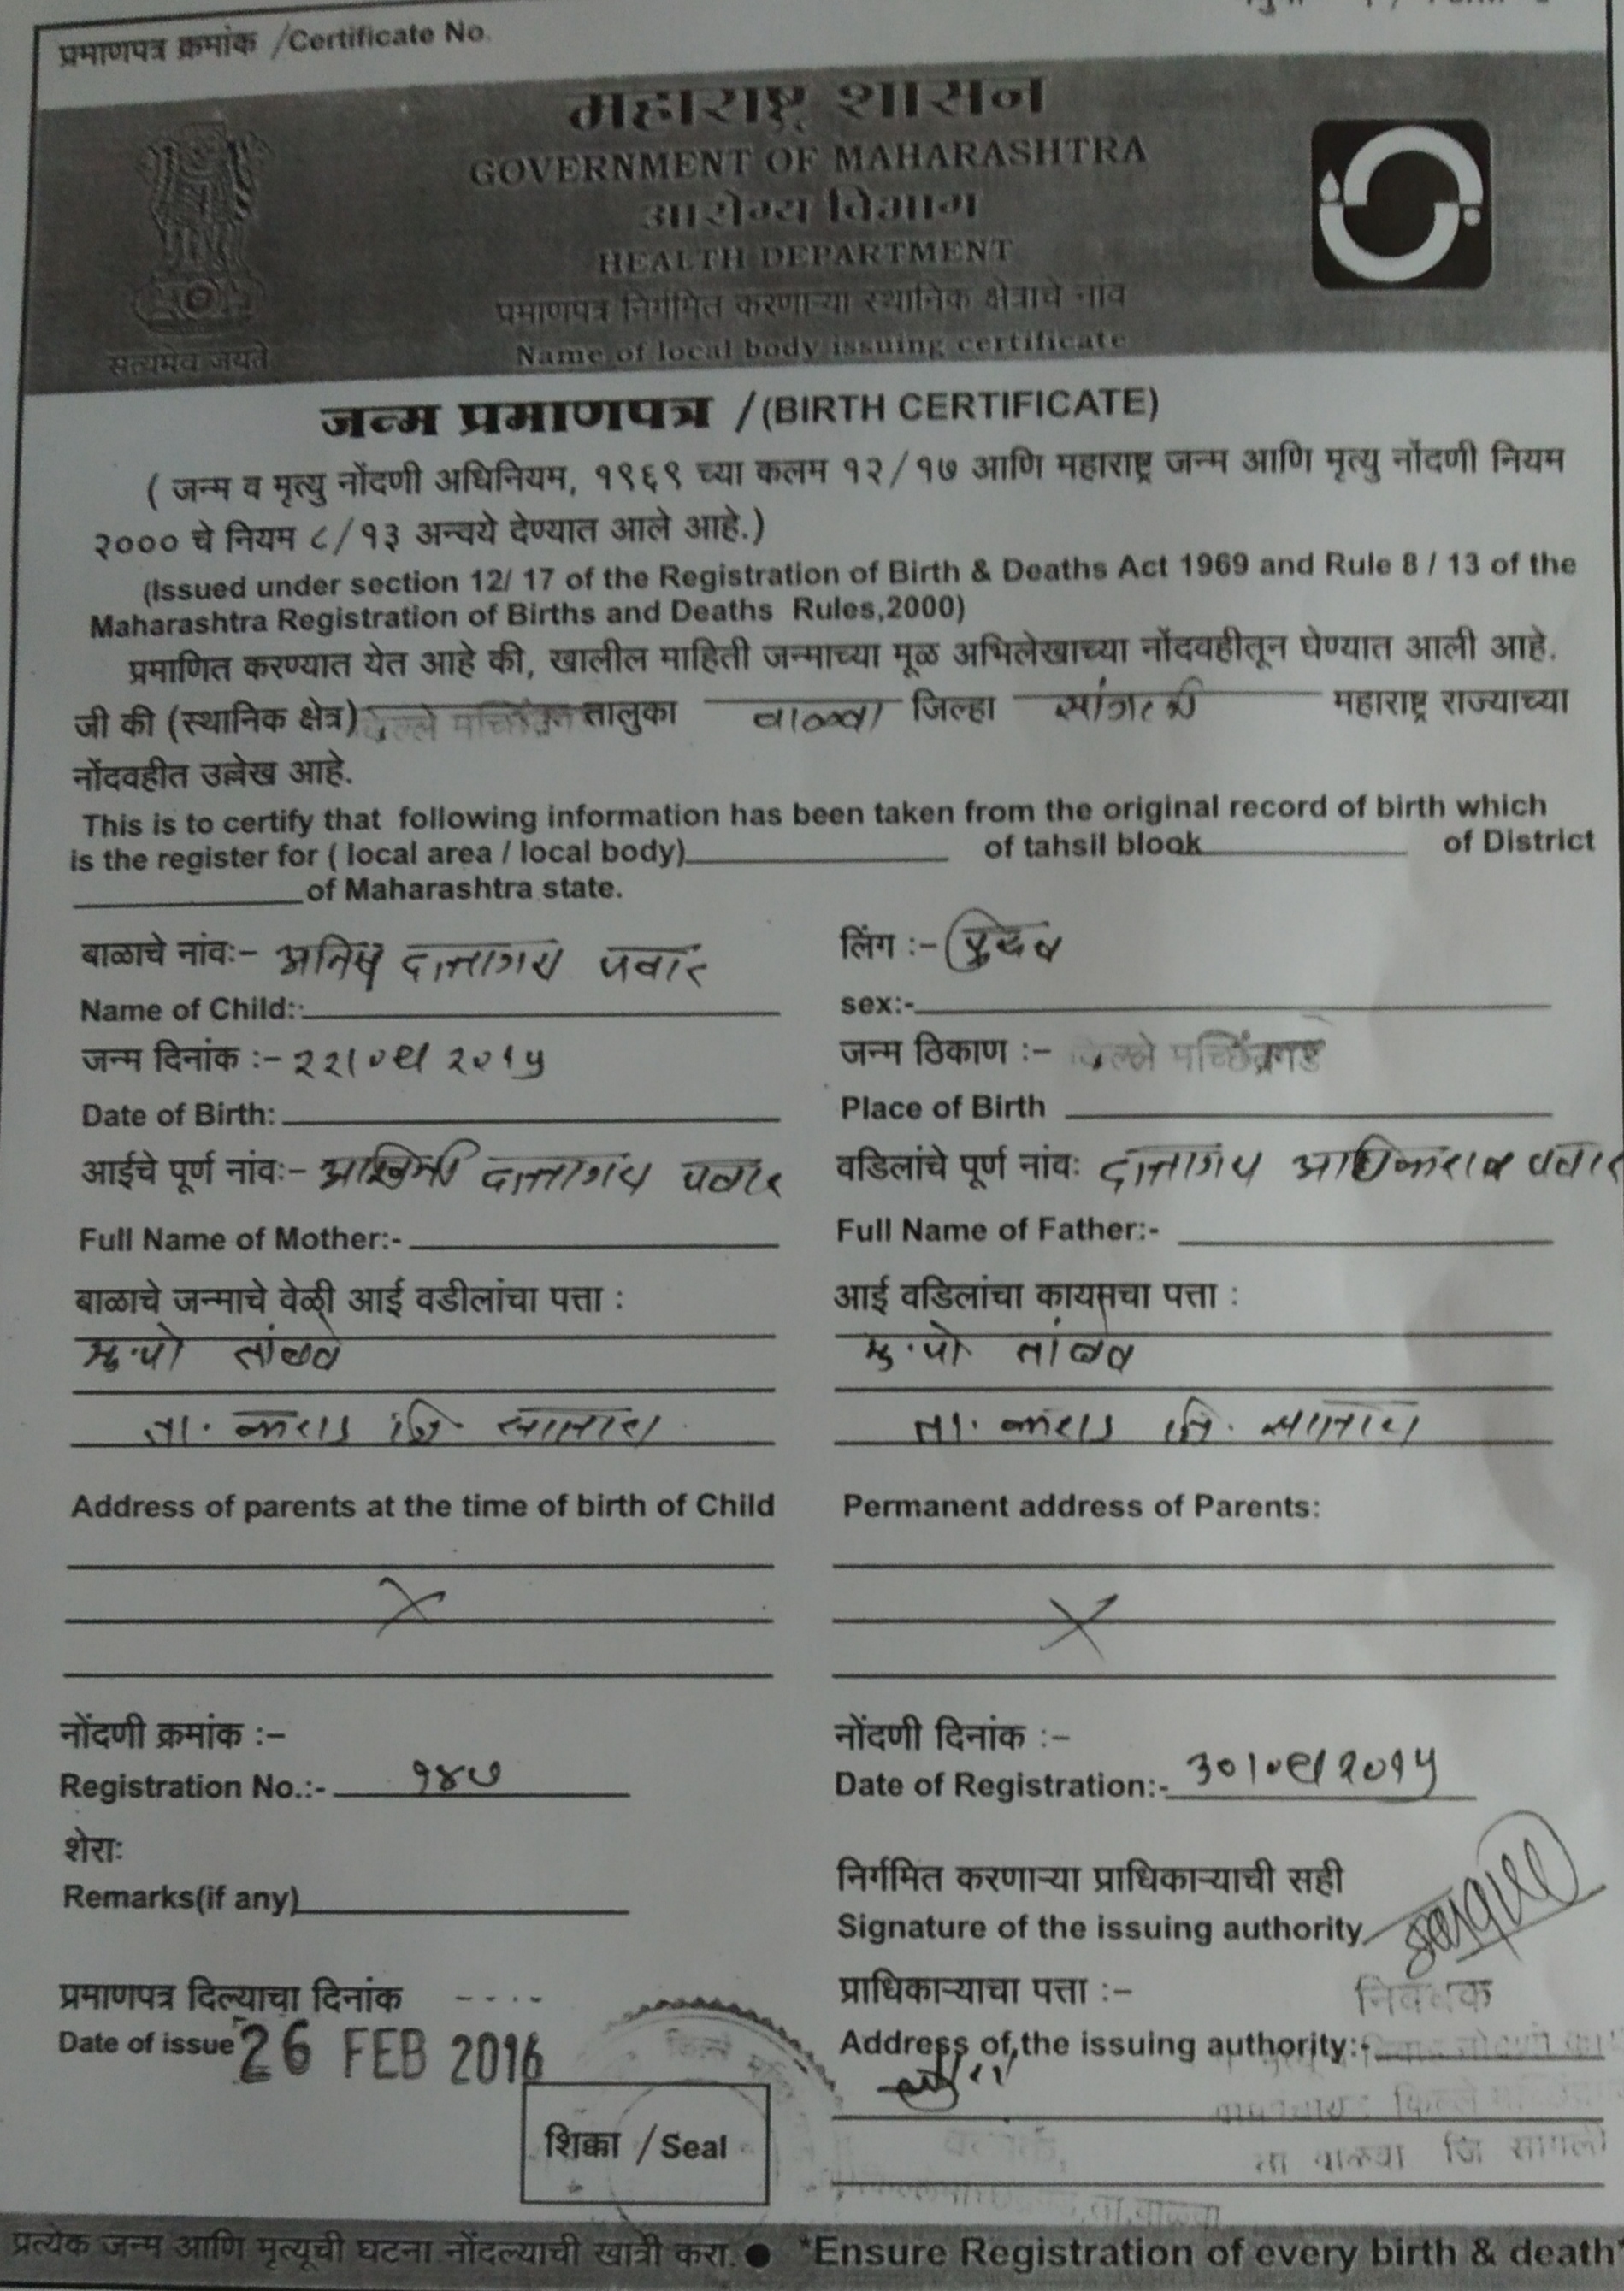 प्रमाणपत्र क्रमांक /Certificate No.
महाराष्ट्र शासन
GOVERNMENT OF MAHARASHTRA
आरोग्य विभाग
HEALTH DEPARTMENT
प्रमाणपत्र निर्गमित करणाऱ्या स्थानिक क्षेत्राचे नांव
Name of local body issuing certificate
सत्यमेव जयते
जन्म प्रमाणपत्र /(BIRTH CERTIFICATE)
( जन्म व मृत्यु नोंदणी अधिनियम, १९६९ च्या कलम १२/१७ आणि महाराष्ट्र जन्म आणि मृत्यु नोंदणी नियम
२००० चे नियम ८/१३ अन्वये देण्यात आले आहे.)
(Issued under section 12/ 17 of the Registration of Birth & Deaths Act 1969 and Rule 8 / 13 of the
Maharashtra Registration of Births and Deaths Rules,2000)
प्रमाणित करण्यात येत आहे की, खालील माहिती जन्माच्या मूळ अभिलेखाच्या नोंदवहीतून घेण्यात आली आहे.
जी की (स्थानिक क्षेत्र) किल्ले मच्छिंद्रगड तालुका वाळवा जिल्हा सांगली महाराष्ट्र राज्याच्या
नोंदवहीत उल्लेख आहे.
This is to certify that following information has been taken from the original record of birth which
is the register for ( local area / local body) of tahsil block of District
of Maharashtra state.
बाळाचे नांवः- अनिष दत्तात्रय पवार लिंग :- पुरुष
Name of Child:: sex:-
जन्म दिनांक :- २२।०९।२०१५ जन्म ठिकाण :- किल्ले मच्छिंद्रगड
Date of Birth: Place of Birth
आईचे पूर्ण नांवः- दत्तात्रय पवार वडिलांचे पूर्ण नांवः दत्तात्रय अधिकराव पवार
Full Name of Mother:- Full Name of Father:-
बाळाचे जन्माचे वेळी आई वडीलांचा पत्ता : आई वडिलांचा कायमचा पत्ता :
मु.पो तांबवे मु.पो तांबवे
ता. कराड जि. सातारा ता. कराड जि. सातारा
Address of parents at the time of birth of Child Permanent address of Parents:
नोंदणी क्रमांक :- नोंदणी दिनांक :-
Registration No.:- १४७ Date of Registration:- ३०।०९।२०१५
शेराः
Remarks(if any)
निर्गमित करणाऱ्या प्राधिकाऱ्याची सही
Signature of the issuing authority
प्रमाणपत्र दिल्याचा दिनांक प्राधिकाऱ्याचा पत्ता :- निबंधक
Date of issue 26 FEB 2016 Address of the issuing authority:-
किल्ले
ता वाळवा जि सांगली
शिक्का /Seal
ता.वाळवा
प्रत्येक जन्म आणि मृत्यूची घटना नोंदल्याची खात्री करा. ● *Ensure Registration of every birth & death*